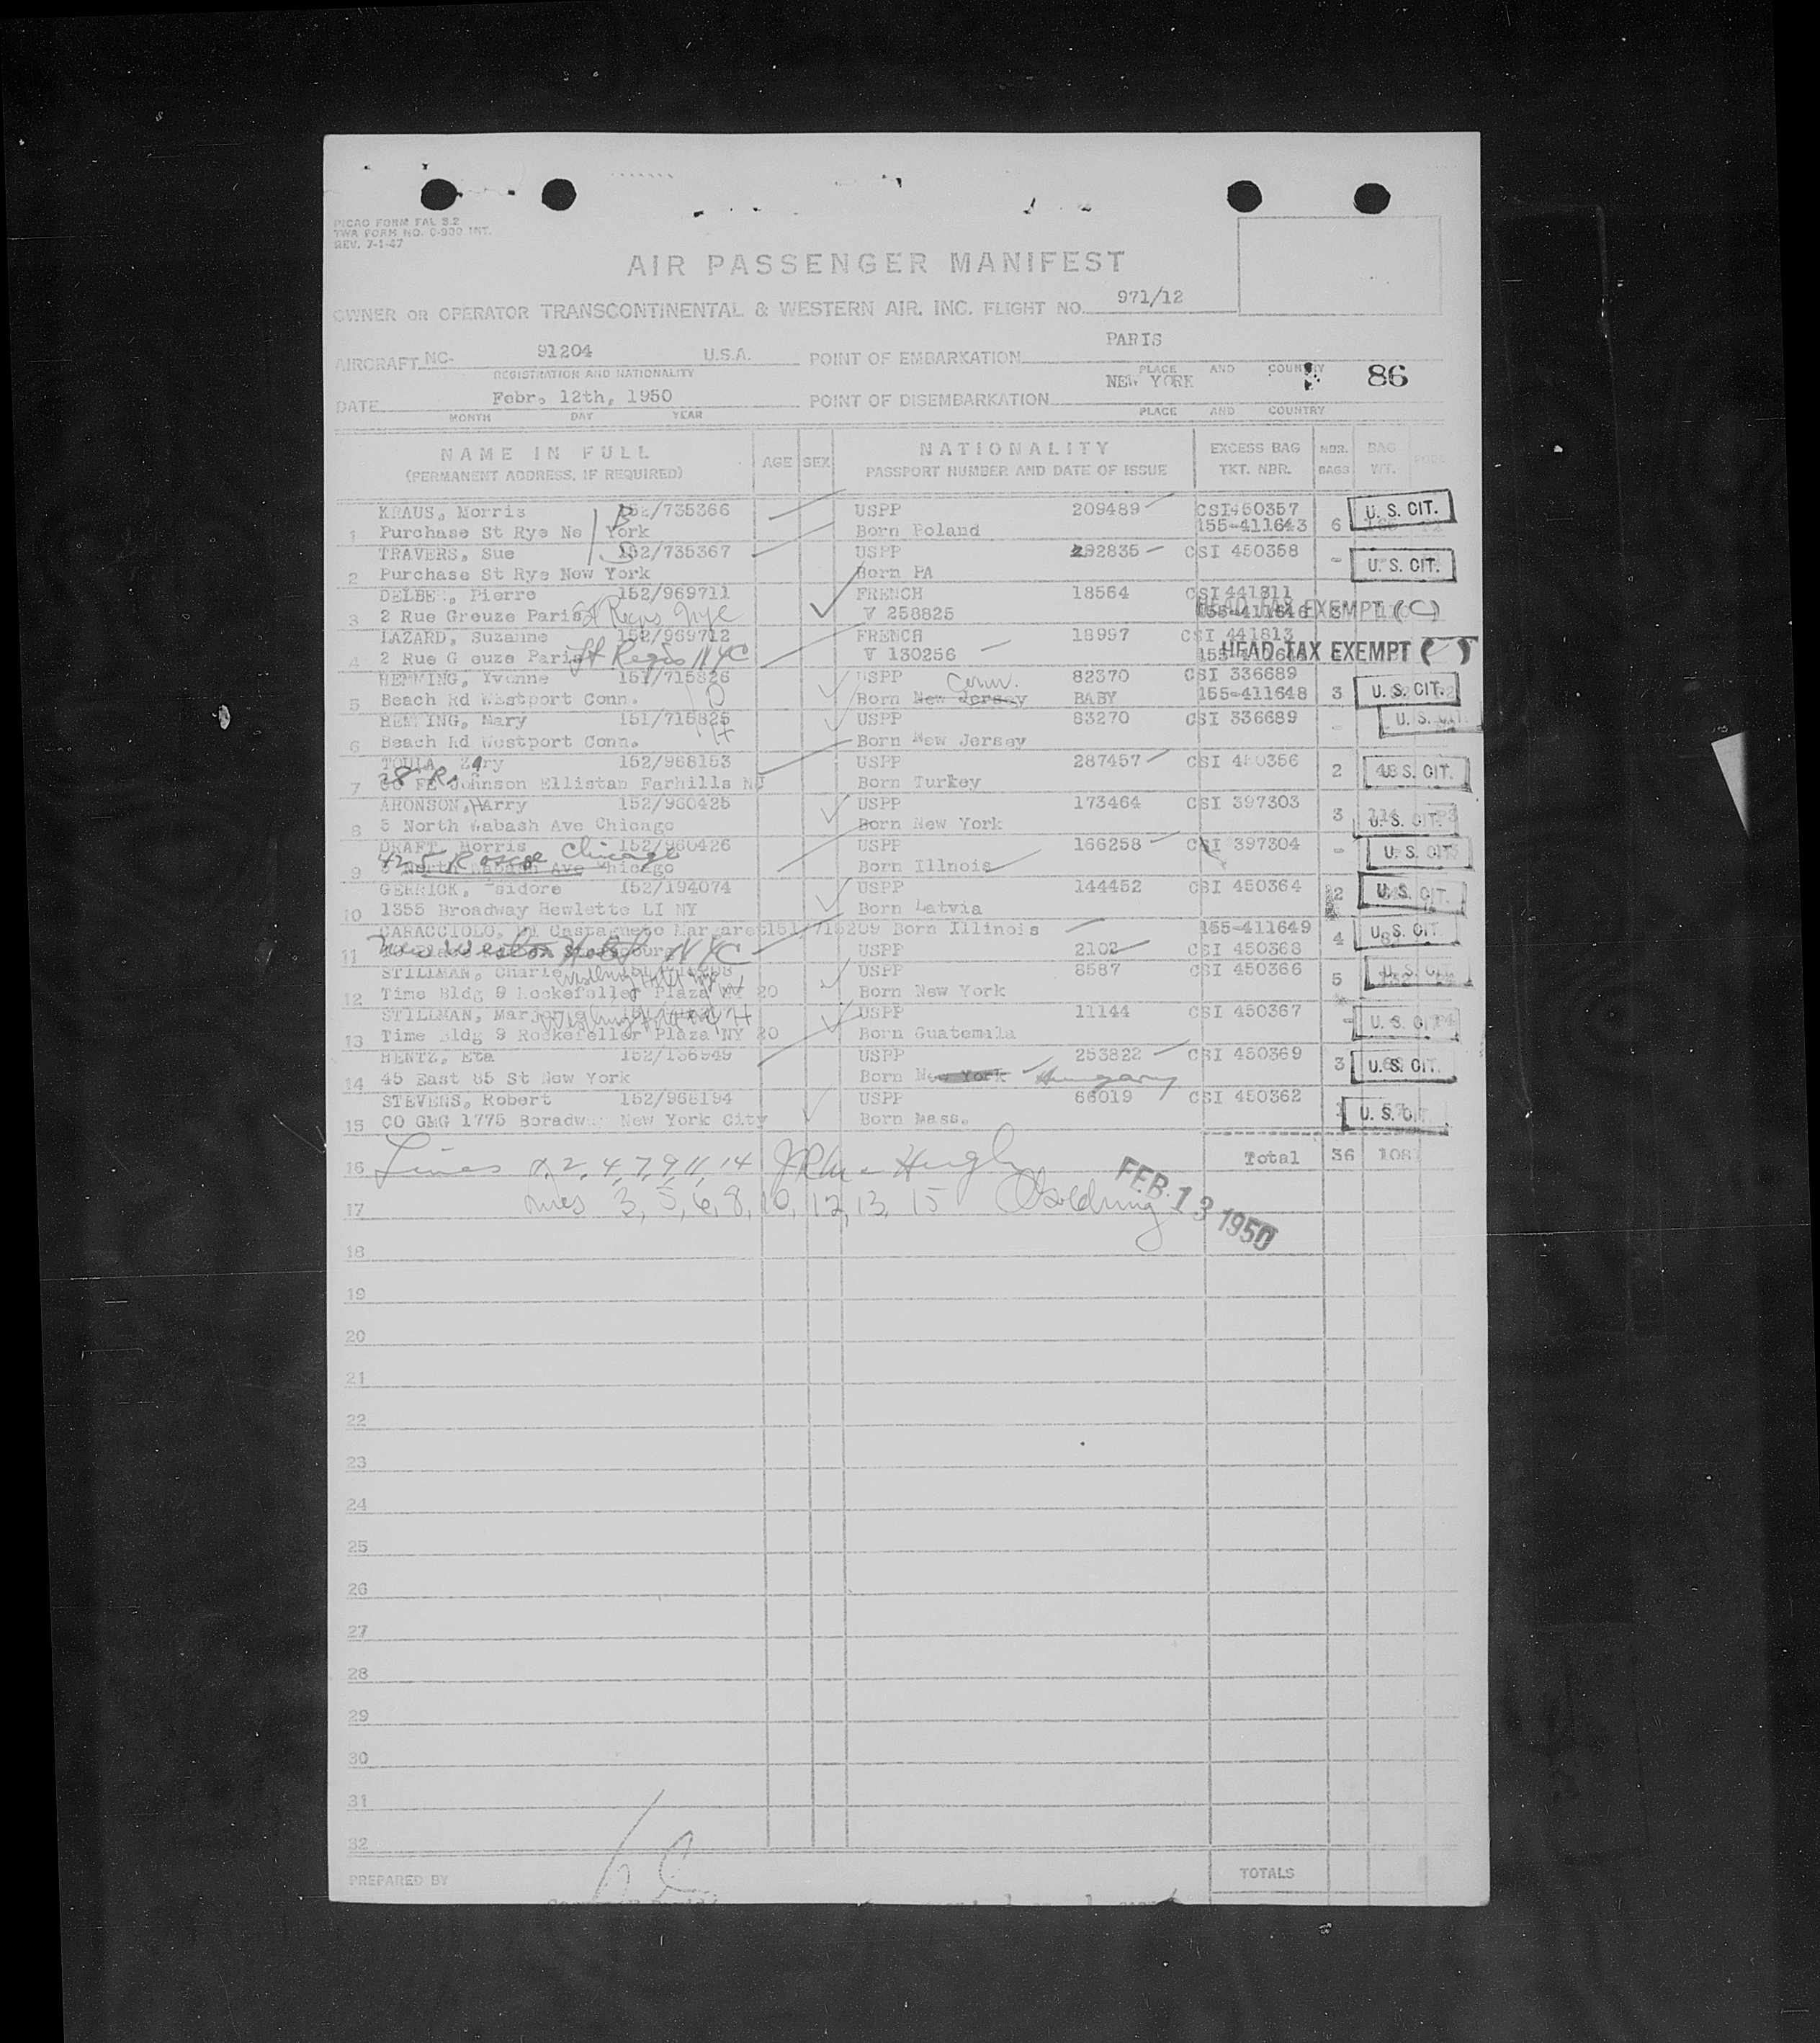 PICAO FORM FAL 3.2
TWA FORM NO. 0-900 INT.
REV. 7-1-47
AIR PASSENGER MANIFEST
OWNER OR OPERATOR TRANSCONTINENTAL & WESTERN AIR, INC. FLIGHT NO. 971/12
AIRCRAFT NC. 91204 U.S.A. POINT OF EMBARKATION PARIS
REGISTRATION AND NATIONALITY PLACE AND COUNTRY
86
DATE Febr. 12th, 1950 POINT OF DISEMBARKATION NEW YORK
MONTH DAY YEAR PLACE AND COUNTRY
NAME IN FULL AGE SEX NATIONALITY EXCESS BAG NBR. BAG
(PERMANENT ADDRESS, IF REQUIRED) PASSPORT NUMBER AND DATE OF ISSUE TKT. NBR. BAGS WT.
KRAUS, Morris 152/735366 USPP 209489 CSI450357 U. S. CIT.
1 Purchase St Rye Ne York Born Poland 155-411643 6
TRAVERS, Sue 152/735367 USPP 292835 CSI 450358
2 Purchase St Rye New York Born PA - U. S. CIT.
Pierre 152/969711 FRENCH 18564 CSI 441811
3 2 Rue Greuze Paris St Regis NYC V 258825 HEAD TAX EXEMPT (C)
LAZARD, Suzanne 152/969712 FRENCH 18997 CSI 441813
4 2 Rue G euze Paris St Regis NYC V 130256 HEAD TAX EXEMPT
HEMMING, Yvonne 151/715826 USPP Conn. 82370 CSI 336689
5 Beach Rd Westport Conn. Born New Jersey BABY 155-411648 3 U. S. CIT.
Mary 151/715825 USPP 83270 CSI 336689 U. S. CIT.
6 Beach Rd Westport Conn. Born New Jersey -
TOULA, Zary 152/968153 USPP 287457 CSI 450356
7 Johnson Ellistan Farhills NJ Born Turkey 2 U. S. CIT.
ARONSON, Harry 152/960425 USPP 173464 CSI 397303
8 5 North Wabash Ave Chicago Born New York 3 U. S. CIT.
DRAFT, Morris 152/960426 USPP 166258 CSI 397304
425 Roscoe Chicago
9 North Wabash Ave Chicago Born Illnois - U. S. CIT.
GERRICK, Isidore 152/194074 USPP 144452 CSI 450364 2 U. S. CIT.
10 1355 Broadway Hewlette LI NY Born Latvia
CARACCIOLO, Di Castagneto Margaret Born Illinois 155-411649 U. S. CIT.
11 New Weston Hotel NYC USPP 2102 CSI 450368 4
STILLMAN, Charles USPP 8587 CSI 450366 U. S. CIT.
12 Time Bldg 9 Rockefeller Plaza NY 20 Born New York 5
STILLMAN, USPP 11144 CSI 450367 - U. S. CIT.
13 Time Bldg 9 Rockefeller Plaza NY 20 Born Guatemala
HENTZ, Eta 152/136949 USPP 253822 CSI 450369 3 U. S. CIT.
14 45 East 85 St New York Born New York Hungary
STEVENS, Robert 152/968194 USPP 66019 CSI 450362 U. S. CIT.
15 CO GMG 1775 Boradway New York City Born Mass.
16 Lines 1, 2, 4, 7, 9, 11, 14 Total 36 108
17 Lines 3, 5, 6, 8, 10, 12, 13, 15 FEB 13 1950
18
19
20
21
22
23
24
25
26
27
28
29
30
31
32
PREPARED BY TOTALS